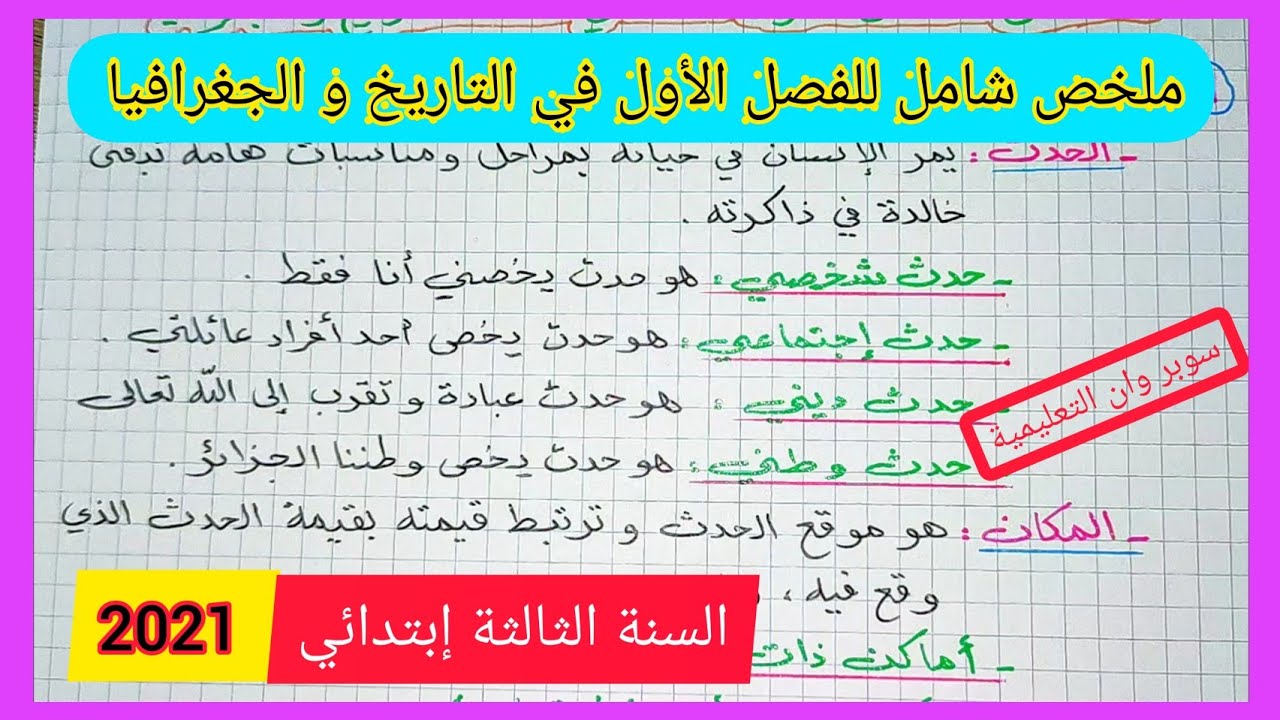 ملخص شامل للفصل الأول في التاريخ و الجغرافيا
- الحدث : يمر الإنسان في حياته بمراحل ومناسبات هامة تبقى
خالدة في ذاكرته .
- حدث شخصي : هو حدث يخصني أنا فقط .
- حدث إجتماعي : هو حدث يخص أحد أفراد عائلتي .
- حدث ديني : هو حدث عبادة و تقرب إلى الله تعالى
حدث وطني : هو حدث يخص وطننا الجزائر .
سوبر وان التعليمية
- المكان : هو موقع الحدث و ترتبط قيمته بقيمة الحدث الذي
وقع فيه ،
- أماكن ذات
السنة الثالثة إبتدائي
2021